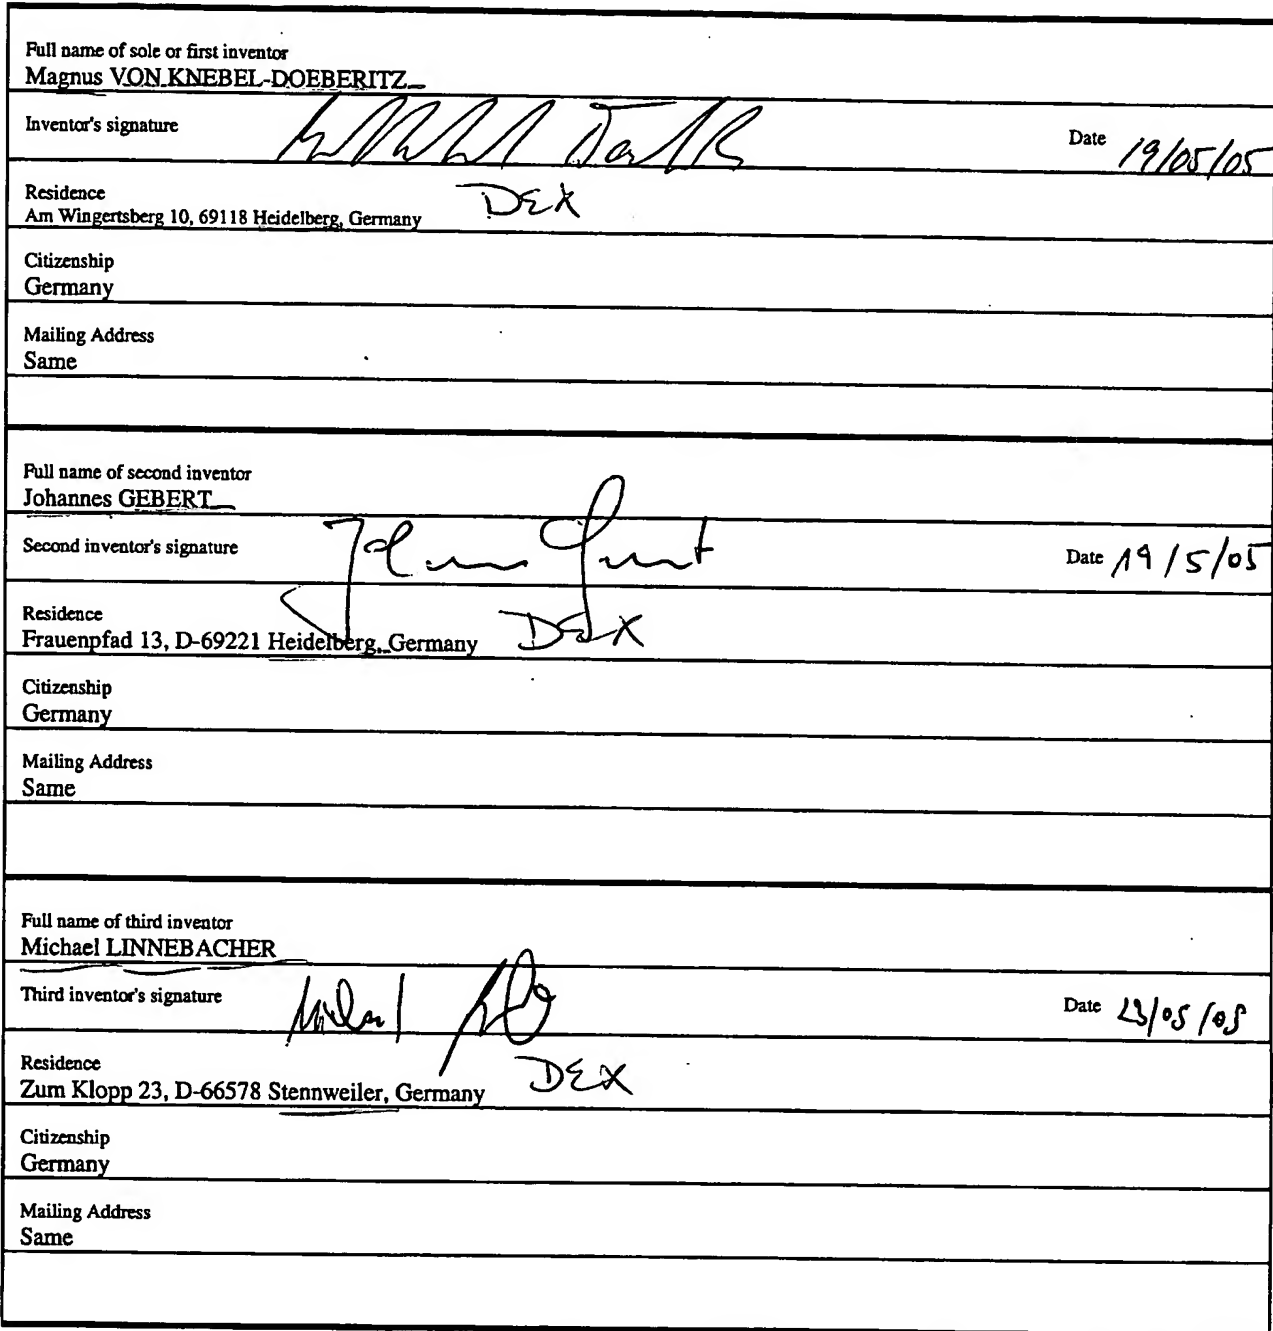 Full name of sole or first inventor
Magnus VON KNEBEL-DOEBERITZ
Inventor's signature
Date 19/05/05
Residence
Am Wingertsberg 10, 69118 Heidelberg, Germany DEX
Citizenship
Germany
Mailing Address
Same
Full name of second inventor
Johannes GEBERT
Second inventor's signature
Date 19/5/05
Residence
Frauenpfad 13, D-69221 Heidelberg, Germany DEX
Citizenship
Germany
Mailing Address
Same
Full name of third inventor
Michael LINNEBACHER
Third inventor's signature Michael
Date 23/05/05
Residence
Zum Klopp 23, D-66578 Stennweiler, Germany DEX
Citizenship
Germany
Mailing Address
Same